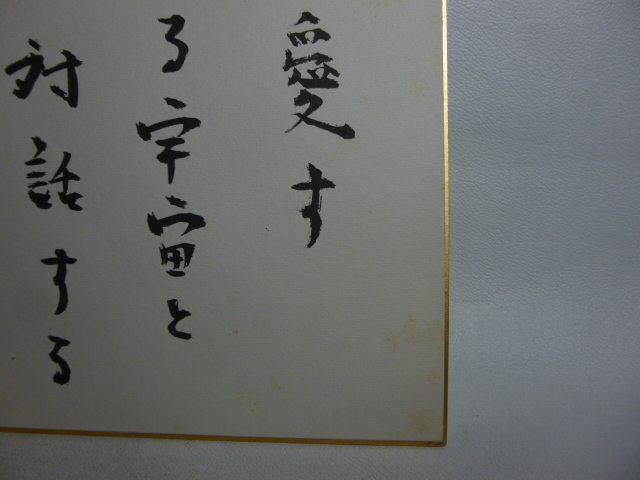 愛す
る宇宙と
対話する